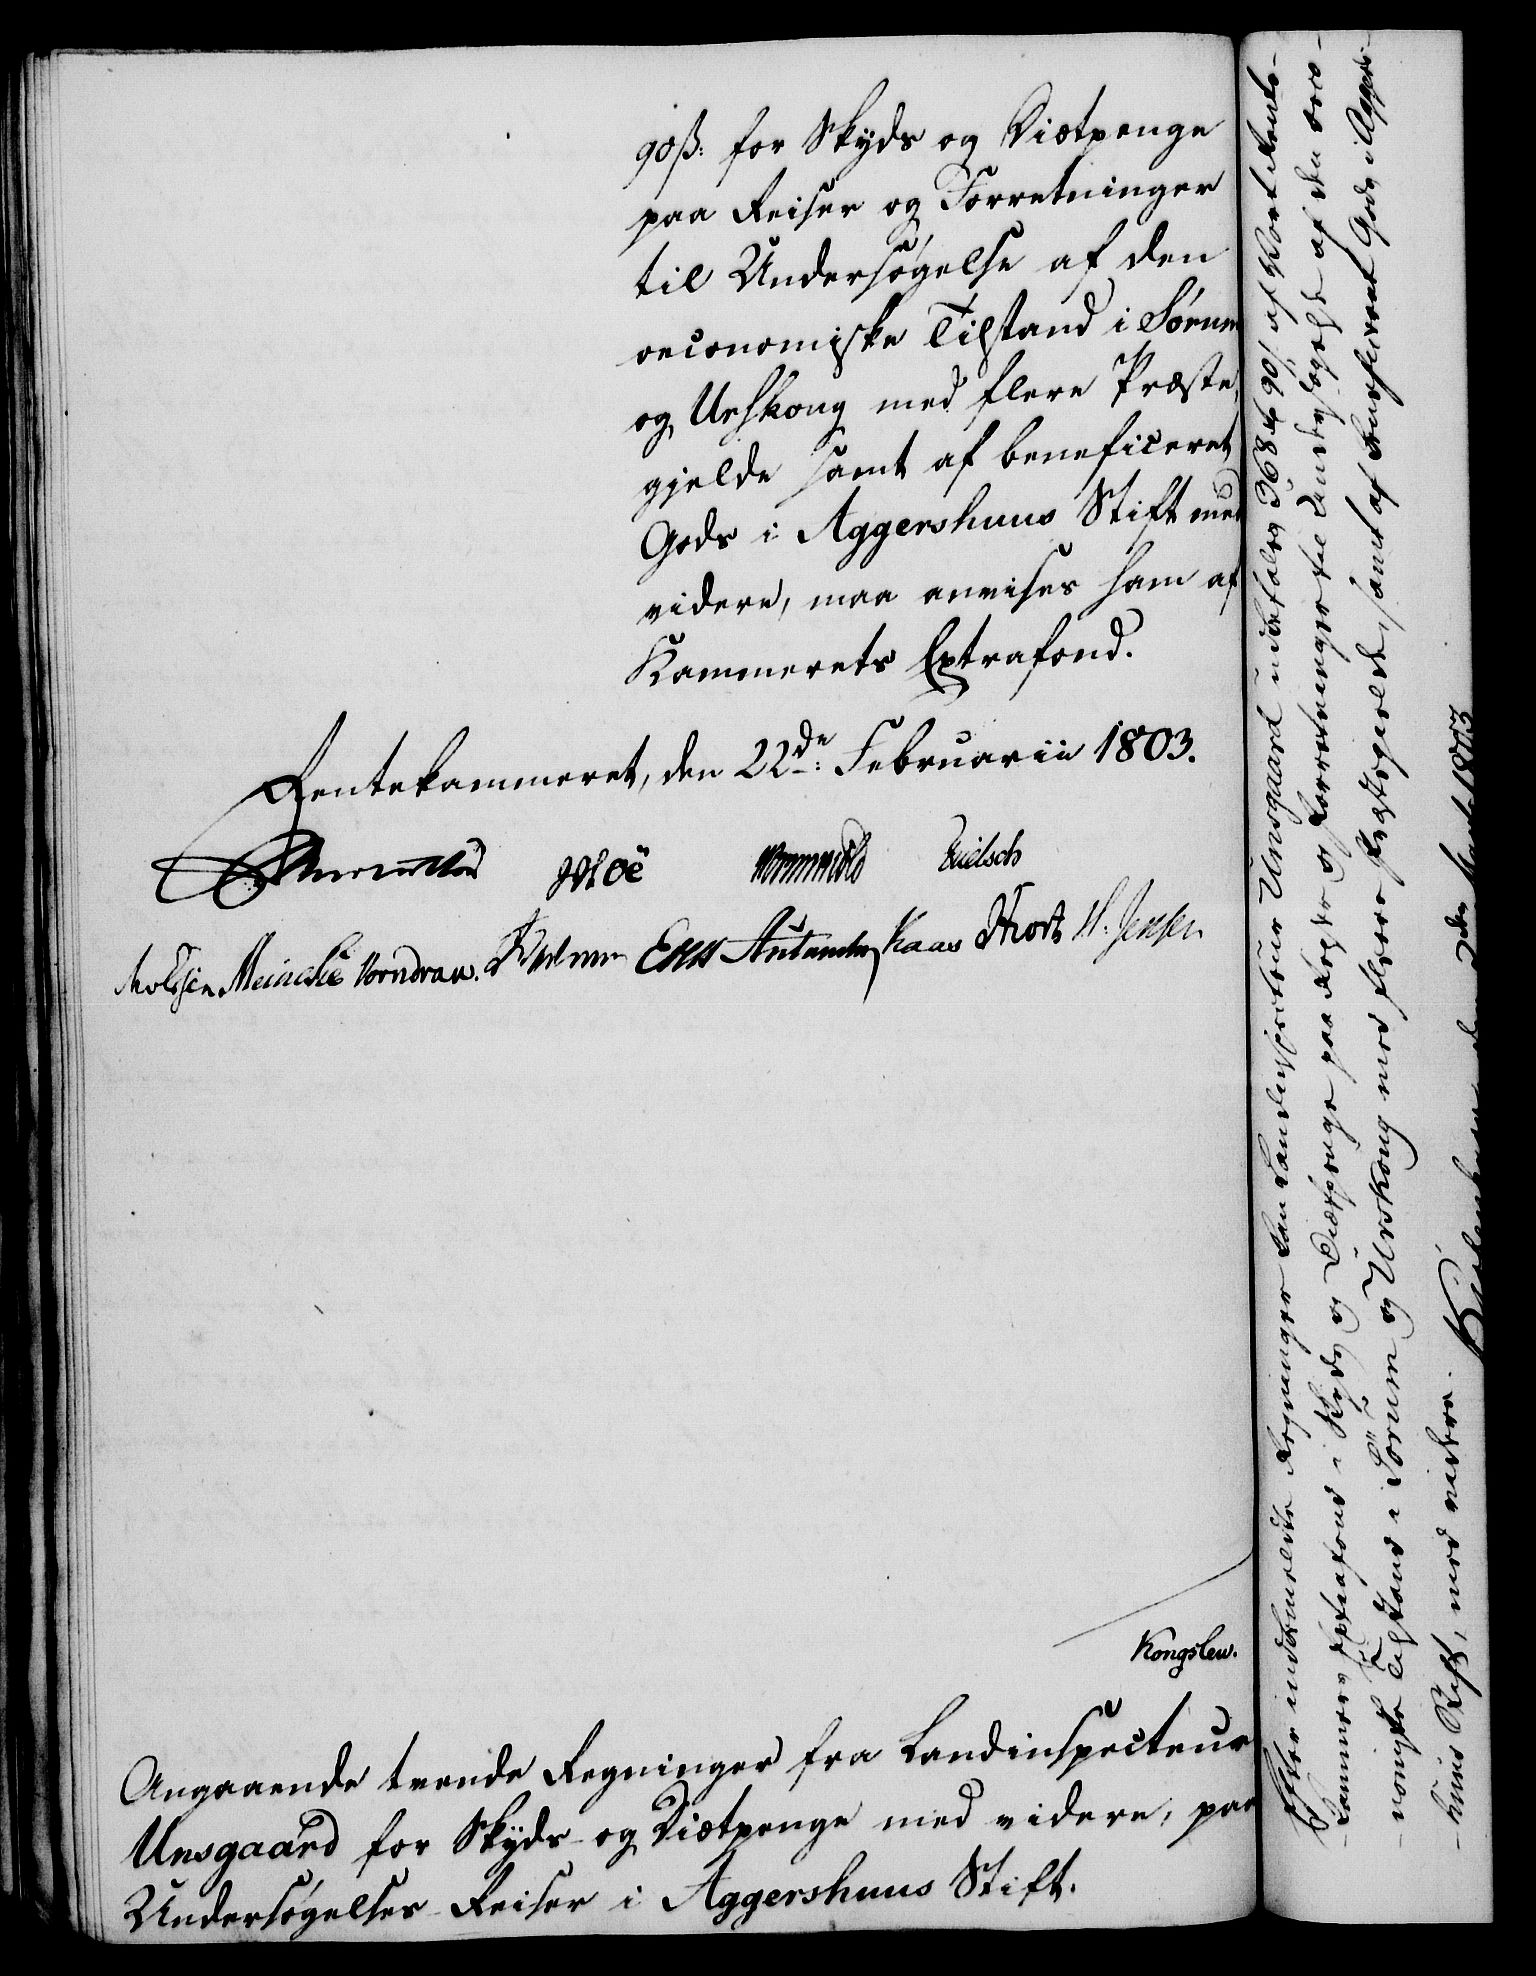 90ß: for Skyds og Diætpenge
paa Reiser og Forretninger
til Undersøgelse af den
oeconomiske Tilstand i Sørum
og Urskoug med flere Præste-
gjelde samt af beneficeret
Gods i Aggershuus Stift med
videre, maa anvises ham af
Kammerets Extrafond.
Rentekammeret, den 22de: Februarii 1803.
Wormskiold
Meincke Vorndran. Kaas Thort H. Jensen
Kongslew.
Angaaende tvende Regninger fra Landinspecteur
Unsgaard for Skyds- og Diætpenge med videre, paa
Undersøgelses-Reiser i Aggershuus Stift.
Efter indsendte Regninger kan Landinspecteur Unsgaard udbetales 368 90 ß af Vort Rente-
-kammers Extrafond i Skyds og Diætpenge paa Reiser og Forretninger til Undersøgelse af den oeco-
-nomiske Tilstand i Sørum og Urskoug med flere Præstegjelde, samt af beneficeret Gods i Aggers-
-huus Stift, med videre. Kiøbenhavn den 2den Marts 1803